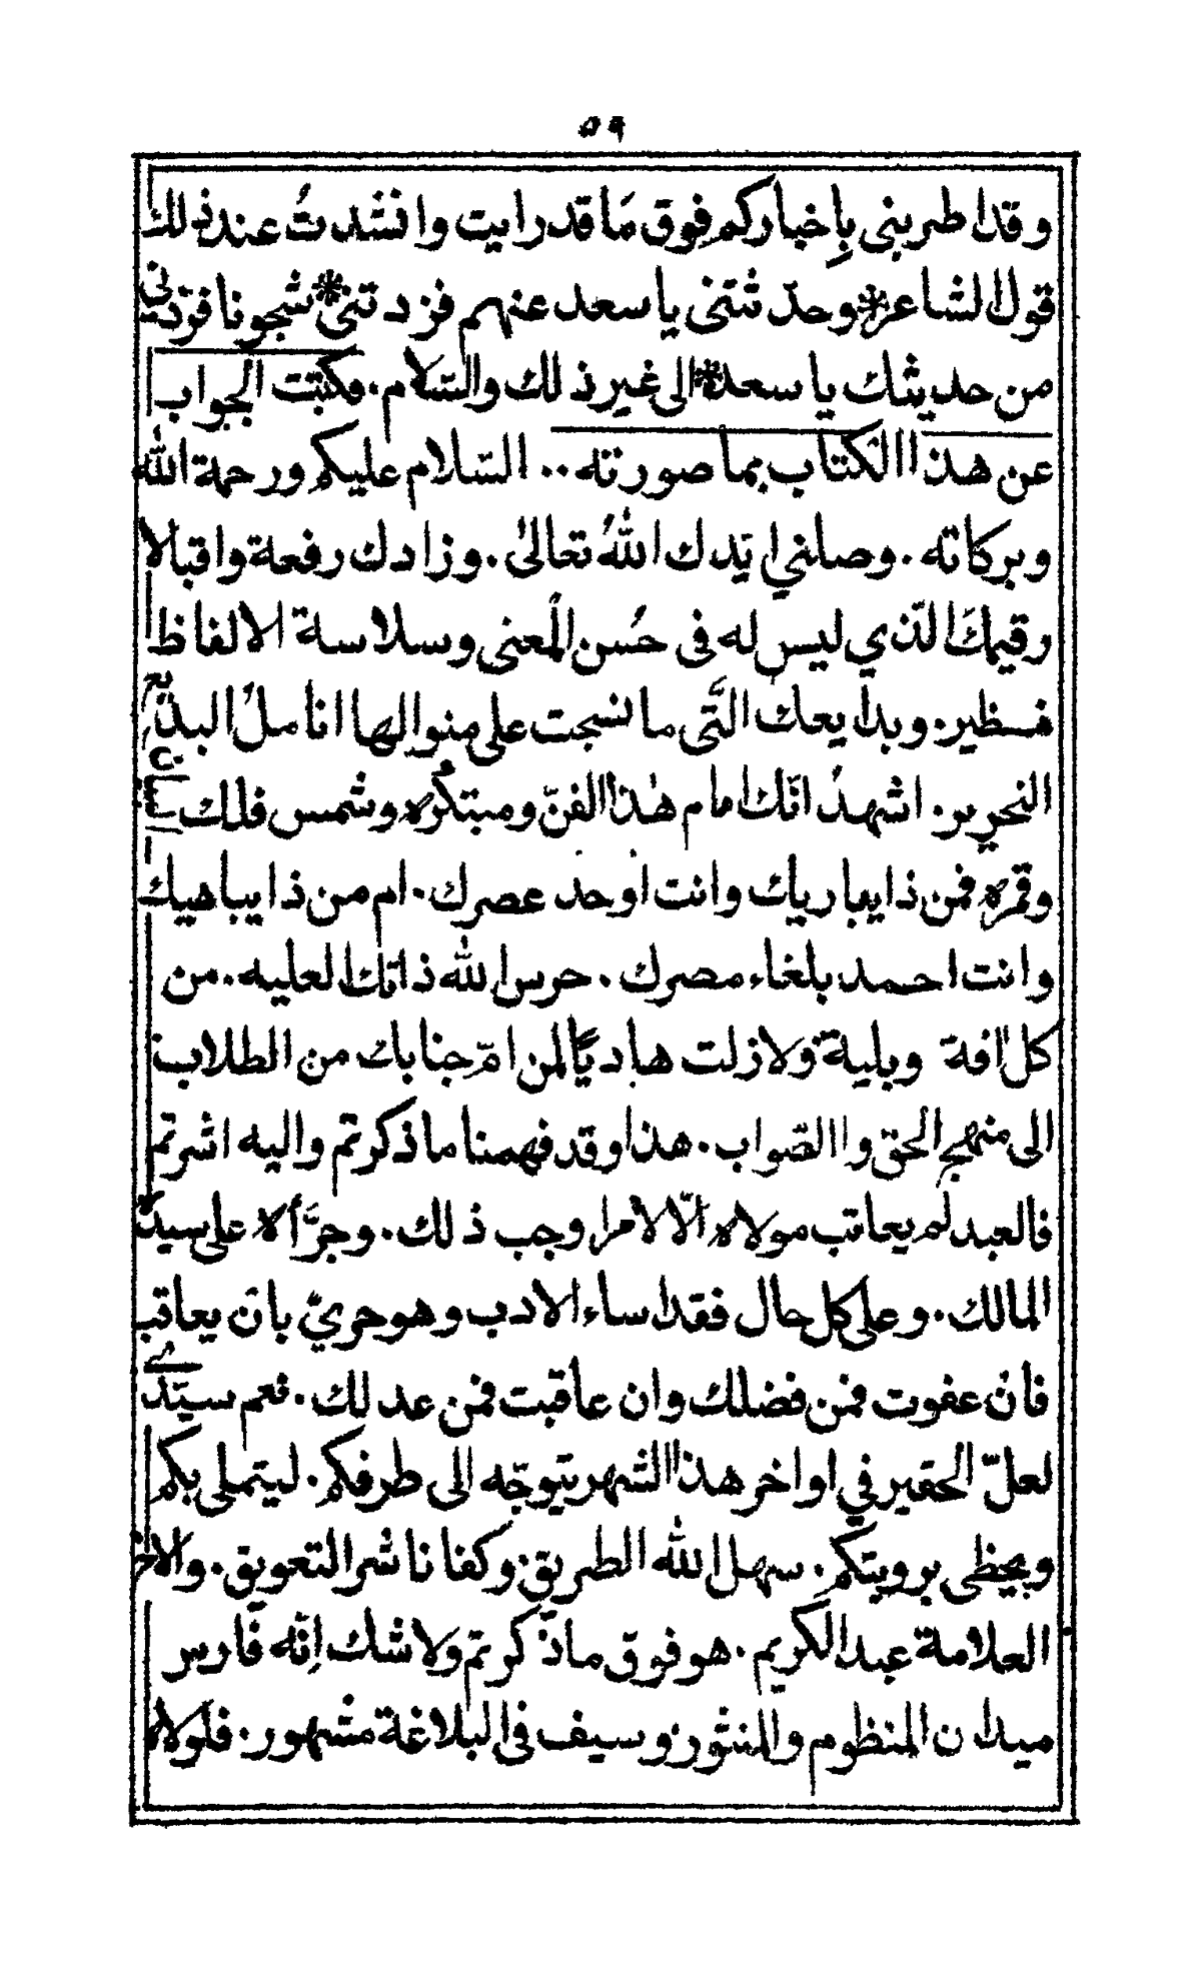 ٥٩
وقد اطربنى بِاخباركم فوق مَا قد رايت وانشدتُ عند ذلك
قول الشاعر * وحدّثتنى يا سعد عنهم فزدتنى * شجونا فزدني
من حديثك يا سعد * الى غير ذلك والسّلام . فكتبت الجواب
عن هذا الكتاب بما صورته .. السّلام عليكم ورحمة الله
وبركاته . وصلني ايّدك اللهُ تعالىٰ . وزادك رفعة واقبالا
رقيمكَ الّذي ليس له فى حُسن المعنى وسلاسة الالفاظ
نظير . وبدايعك الَّتى ما نسجت على منوالها اناملُ البديع
النحرير . اشهدُ انّك امام هٰذا الفنّ ومبتكره وشمس فلك
وقمره فمن ذا يباريك وانت اوحد عصرك . ام من ذا يباهيك
وانت احمد بلغاء مصرك . حرس الله ذاتك العليه . من
كل افة وبلية ولا زلت هاديًا لمن امّ جنابك من الطلاب
الى منهج الحق والصّواب . هذا وقد فهمنا ما ذكرتم واليه اشرتم
فالعبد لم يعاتب مولاه الّا لامر اوجب ذلك . وجرَّأه على سيده
المالك . وعلى كل حال فقد اساء الادب وهو حريّ بان يعاقب
فان عفوت فمن فضلك وان عاقبت فمن عدلك . نعم سيّدي
لعلّ الحقير في اواخر هذا الشهر يتوجّه الى طرفكم . ليتملى بكم
ويحظى برويتكم . سهل الله الطريق . وكفانا شر التعويق . والاخ
العلامة عبد الكريم . هو فوق ما ذكرتم ولا شك اِنّه فارس
ميدان المنظوم والمنثور . وسيف فى البلاغة مشهور . فلولاه